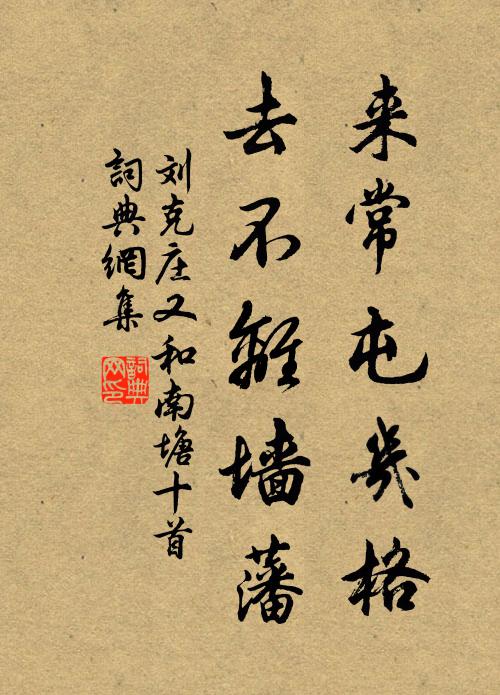 来常屯几格
去不離墙藩
刘克庄又和南塘十首
詞典網集
詞典
网印